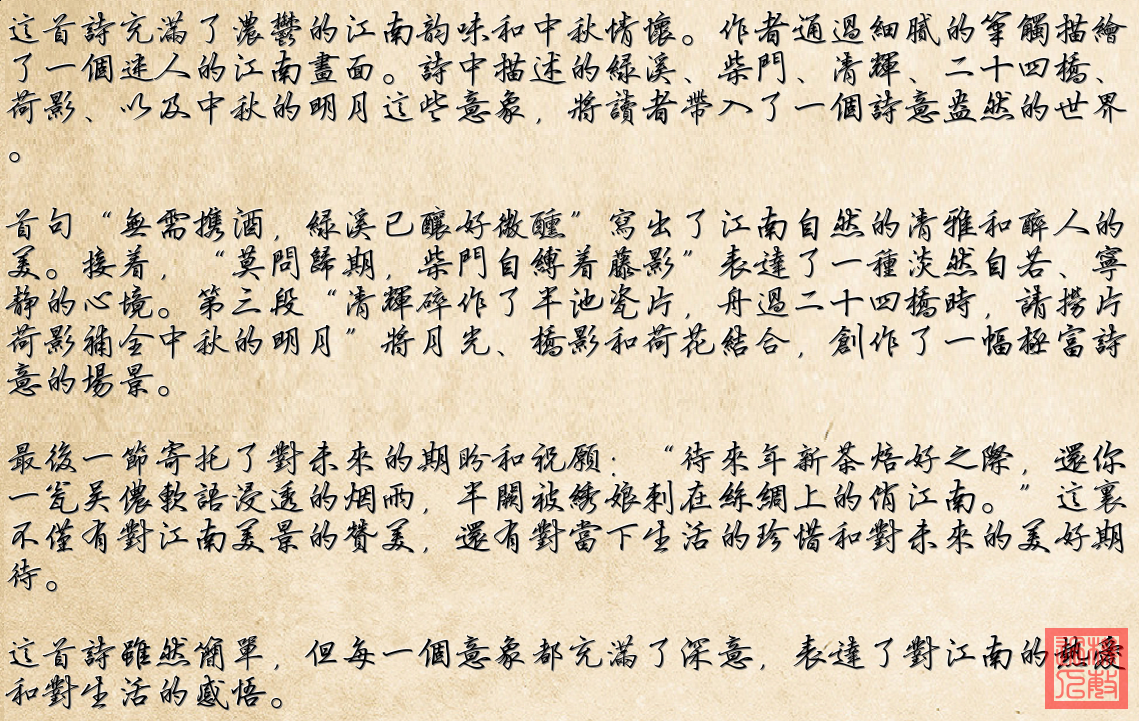 這首詩充滿了濃鬱的江南韵味和中秋情懷。作者通過細膩的筆觸描繪
了一個迷人的江南畫面。詩中描述的綠溪、柴門、清輝、二十四橋、
荷影、以及中秋的明月這些意象，將讀者帶入了一個詩意盎然的世界
。
首句“無需携酒，綠溪已釀好微醺”寫出了江南自然的清雅和醉人的
美。接着，“莫問歸期，柴門自縛着藤影”表達了一種淡然自若、寧
静的心境。第三段“清輝碎作了半池瓷片，舟過二十四橋時，請撈片
荷影補全中秋的明月”將月光、橋影和荷花結合，創作了一幅極富詩
意的場景。
最後一節寄托了對未來的期盼和祝願：“待來年新茶焙好之際，還你
一瓮吴儂軟語浸透的烟雨，半闕被綉娘刺在絲綢上的俏江南。”這裏
不僅有對江南美景的贊美，還有對當下生活的珍惜和對未來的美好期
待。
這首詩雖然簡單，但每一個意象都充滿了深意，表達了對江南的熱愛
和對生活的感悟。